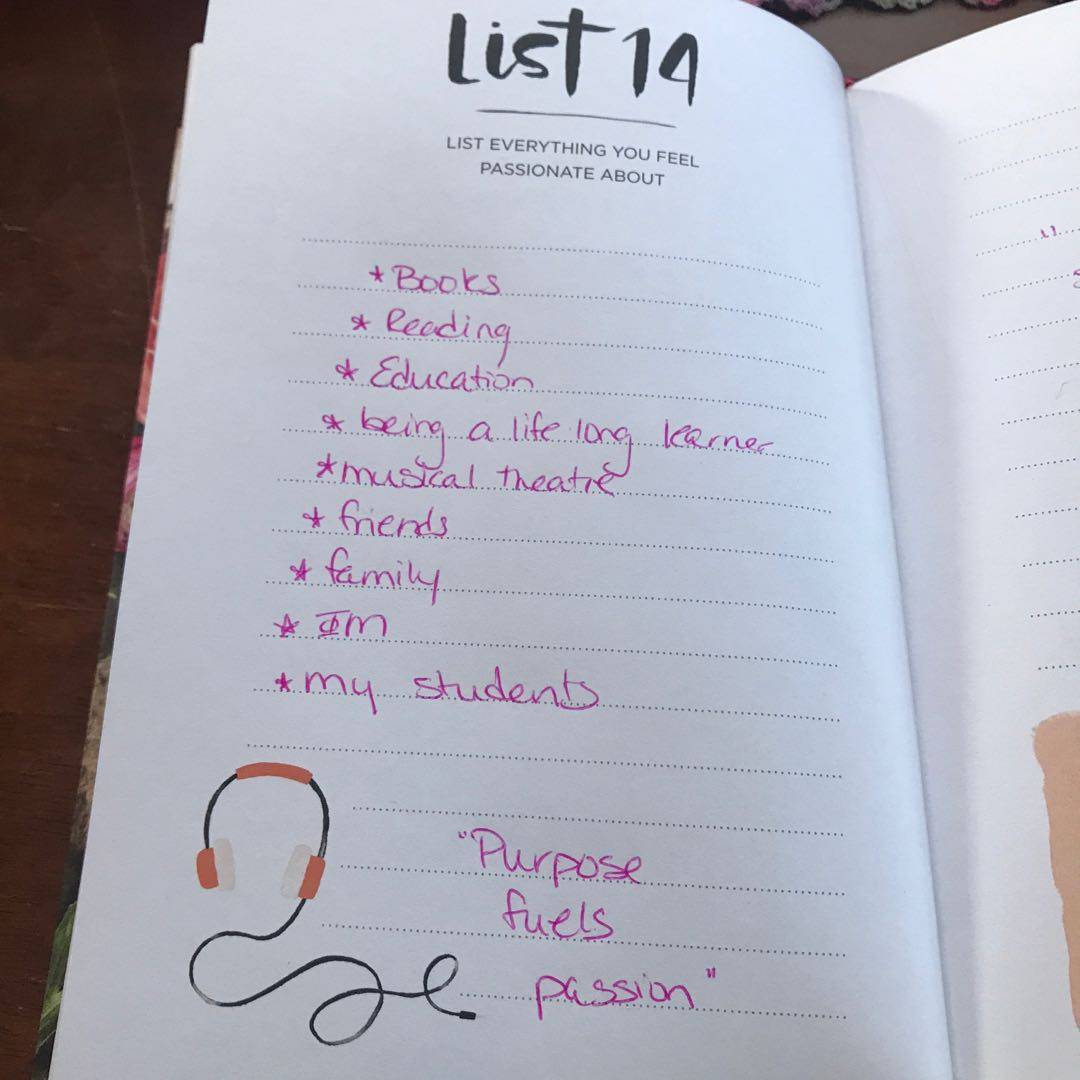 List 14
LIST EVERYTHING YOU FEEL
PASSIONATE ABOUT
* Books
* Reading
* Education
* being a life long learner
* musical theatre
* friends
* family
* ΦM
* my students
"Purpose
fuels
passion"